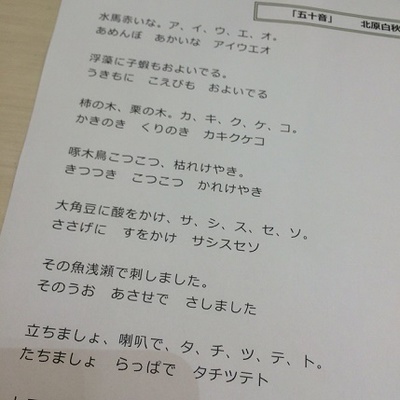 「五十音」 北原白秋
水馬赤いな。ア、イ、ウ、エ、オ。
あめんぼ あかいな アイウエオ
浮藻に子蝦もおよいでる。
うきもに こえびも およいでる
柿の木、栗の木。カ、キ、ク、ケ、コ。
かきのき くりのき カキクケコ
啄木鳥こつこつ、枯れけやき。
きつつき こつこつ かれけやき
大角豆に酸をかけ、サ、シ、ス、セ、ソ。
ささげに すをかけ サシスセソ
その魚浅瀬で刺しました。
そのうお あさせで さしました
立ちましょ、喇叭で、タ、チ、ツ、テ、ト。
たちましょ らっぱで タチツテト